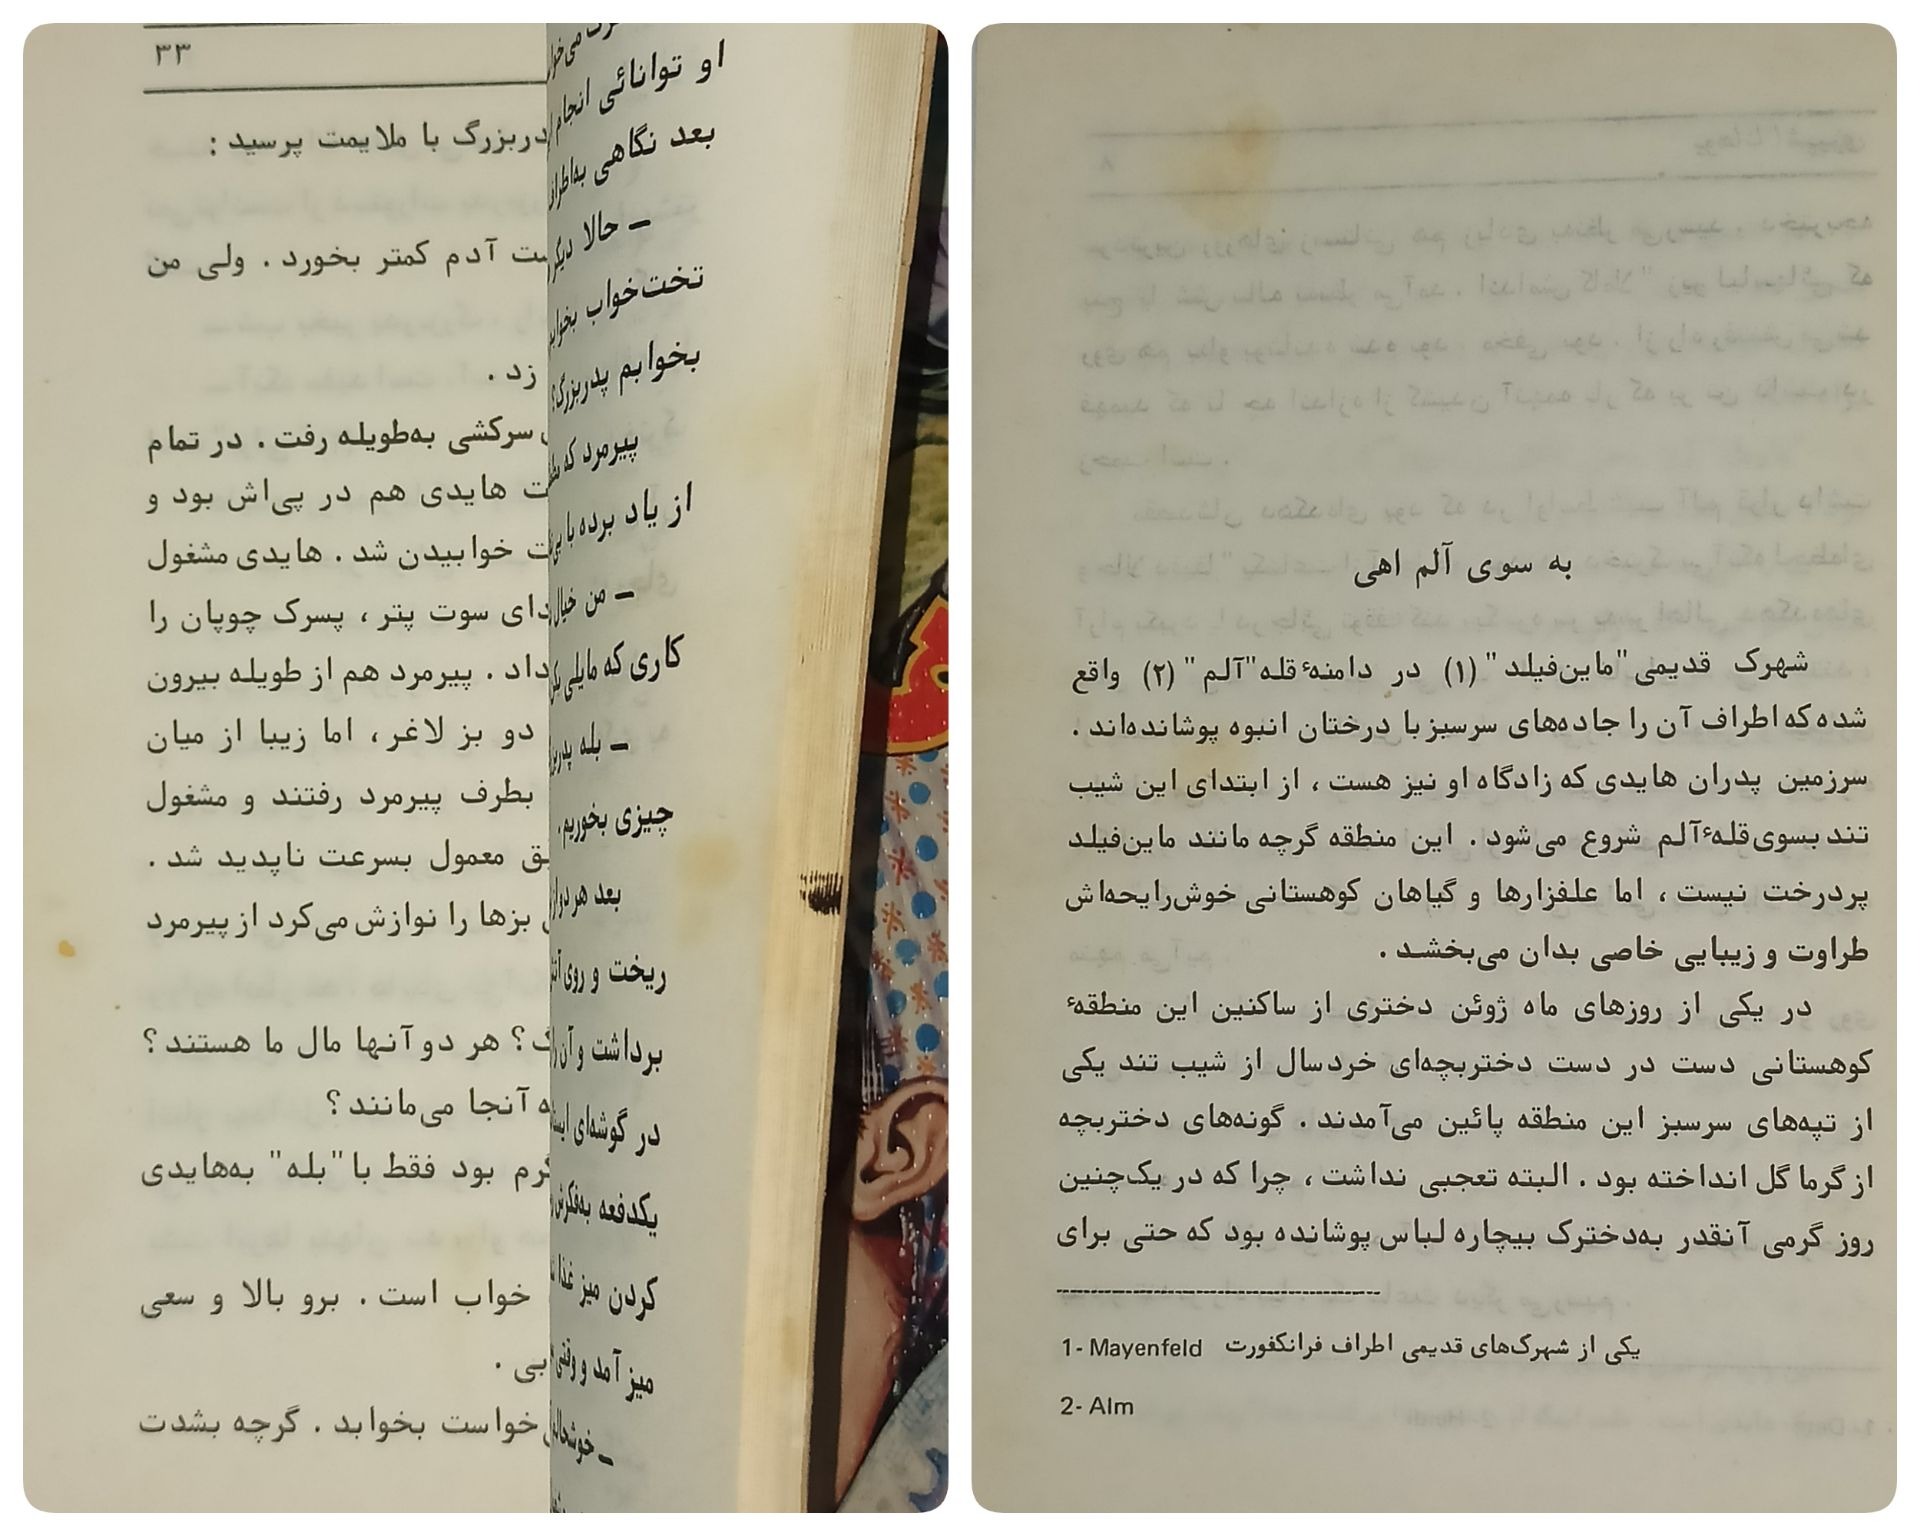 ۳۳
دربزرگ با ملایمت پرسید :
ست آدم کمتر بخورد . ولی من
زد .
سرکشی به‌طویله رفت . در تمام
ت هایدی هم در پی‌اش بود و
ت خوابیدن شد . هایدی مشغول
دای سوت پتر ، پسرک چوپان را
داد . پیرمرد هم از طویله بیرون
دو بز لاغر ، اما زیبا از میان
بطرف پیرمرد رفتند و مشغول
ق معمول بسرعت ناپدید شد .
بزها را نوازش می‌کرد از پیرمرد
ک ؟ هر دو آنها مال ما هستند ؟
ه آنجا می‌مانند ؟
گرم بود فقط با "بله" به‌هایدی
خواب است . برو بالا و سعی
بی .
خواست بخوابد . گرچه بشدت
او توانائی انجام
بعد نگاهی به‌اطراف
ــ حالا دیگر
تخت‌خواب
بخوابم پدربزرگ؟
پیرمرد که
از یاد برده با
ــ من خیال
کاری که مایلی
ــ بله
چیزی بخوریم .
بعد هر دو از
ریخت و روی
برداشت و آن را
در گوشه‌ای
یکدفعه به‌فکرش
کردن میز غذا
میز آمد و وقتی
ــ
به سوی آلم اهی
شهرک قدیمی "ماین‌فیلد" (۱) در دامنهٔ قله "آلم" (۲) واقع
شده که اطراف آن را جاده‌های سرسبز با درختان انبوه پوشانده‌اند .
سرزمین پدران هایدی که زادگاه او نیز هست ، از ابتدای این شیب
تند بسوی قلهٔ آلم شروع می‌شود . این منطقه گرچه مانند ماین‌فیلد
پردرخت نیست ، اما علفزارها و گیاهان کوهستانی خوش‌رایحه‌اش
طراوت و زیبایی خاصی بدان می‌بخشد .
در یکی از روزهای ماه ژوئن دختری از ساکنین این منطقهٔ
کوهستانی دست در دست دختربچه‌ای خردسال از شیب تند یکی
از تپه‌های سرسبز این منطقه پائین می‌آمدند . گونه‌های دختربچه
از گرما گل انداخته بود . البته تعجبی نداشت ، چرا که در یک‌چنین
روز گرمی آنقدر به‌دخترک بیچاره لباس پوشانده بود که حتی برای
1- Mayenfeld یکی از شهرک‌های قدیمی اطراف فرانکفورت
2- Alm